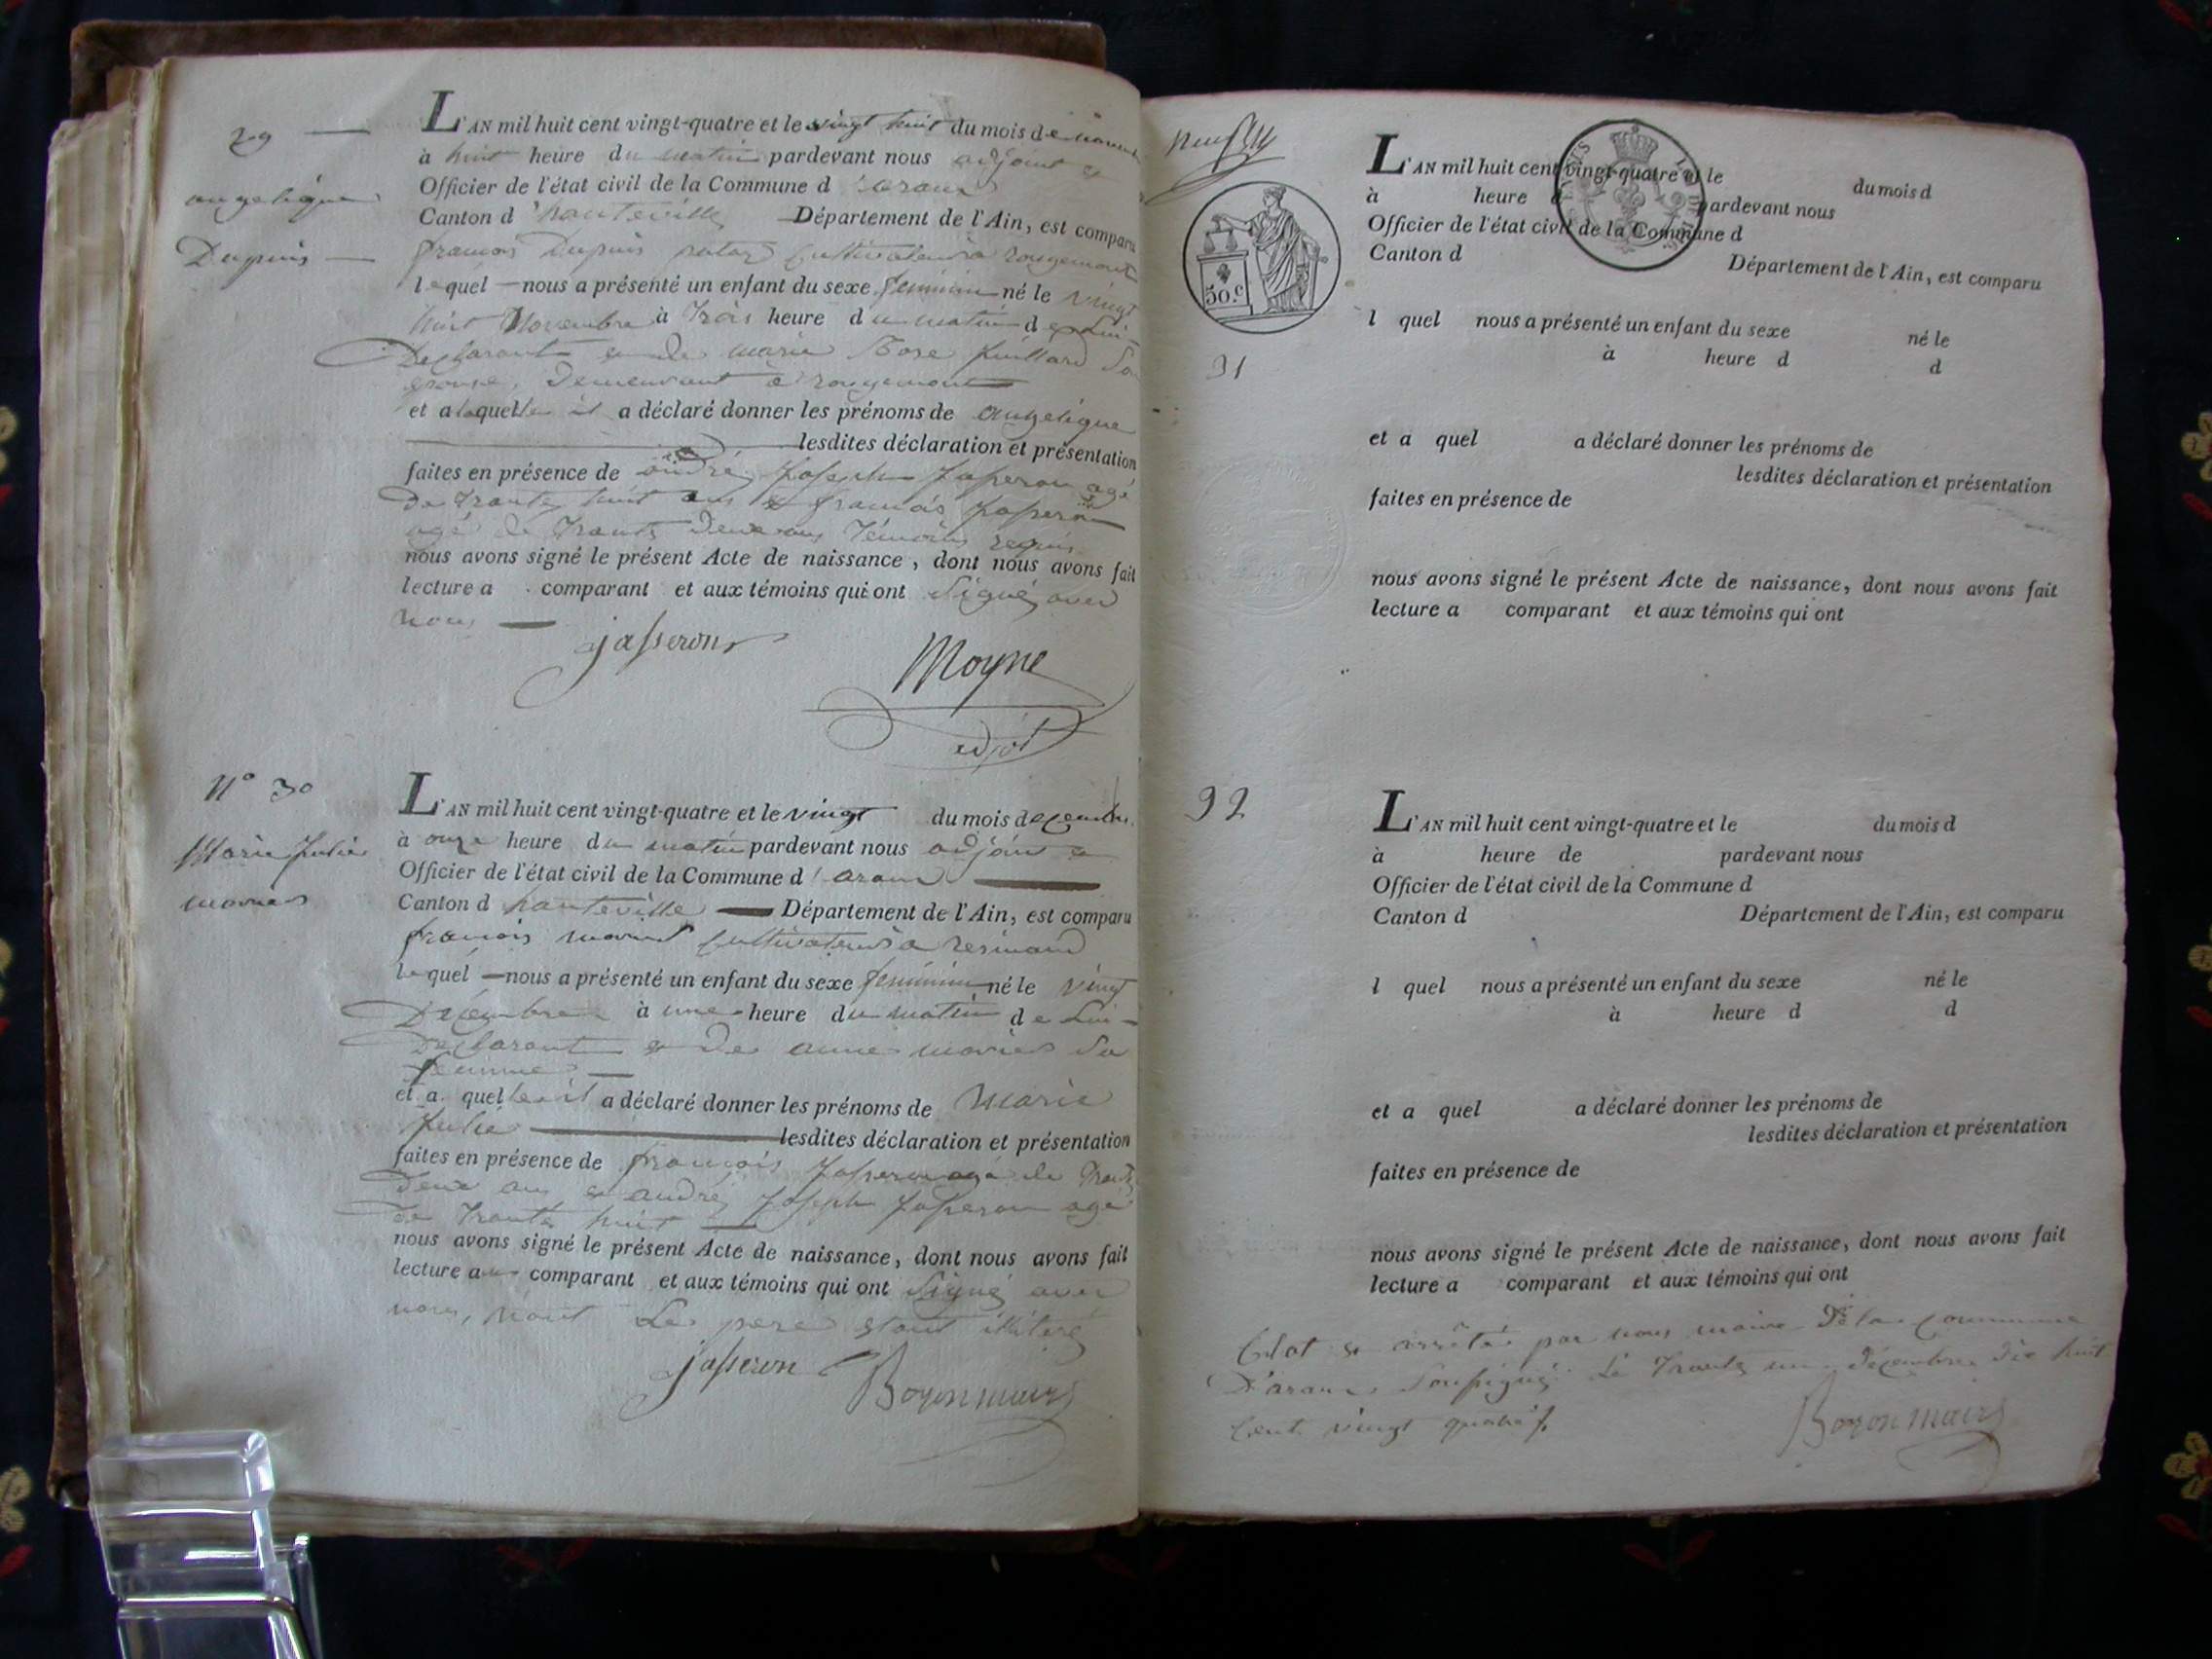 29
angelique
Dupuis
L'AN mil huit cent vingt-quatre et le vingt huit du mois de
à huit heure du matin pardevant nous adjoint &
Officier de l'état civil de la Commune d'aranc
Canton d'hauteville Département de l'Ain, est comparu
francois Dupuis Cultivateur a rougemont
lequel nous a présenté un enfant du sexe feminin né le vingt
huit Novembre à trois heure du matin de Lui
Declarant & de marie Rose Juillard Son
epouse, Demeurant a rougemont
et a laquelle il a déclaré donner les prénoms de angelique
lesdites déclaration et présentation
faites en présence de andré Joseph Jasseron agé
De trante huit ans & francois Jasseron
agé de trante Deux ans témoins requis
nous avons signé le présent Acte de naissance, dont nous avons fait
lecture a comparant et aux témoins qui ont Signé avec
nous
jasseron
Moyne
adjoi
N° 30
Marie Julie
L'AN mil huit cent vingt-quatre et le vingt du mois decembre
à onze heure du matin pardevant nous adjoint &
Officier de l'état civil de la Commune d'aranc
Canton d hauteville Département de l'Ain, est comparu
francois Cultivateur a resinand
lequel nous a présenté un enfant du sexe feminin né le vingt
Decembre à une heure du matin de Lui
Declarant & De anne Sa
femme
et a quelle il a déclaré donner les prénoms de Marie
Julie lesdites déclaration et présentation
faites en présence de francois Jasseron agé de trante
Deux ans & andré Joseph Jasseron agé
De trante huit
nous avons signé le présent Acte de naissance, dont nous avons fait
lecture au comparant et aux témoins qui ont Signé avec
nous, non Le pere etant illiteré
jasseron
Boyon maire
50.c
91
L'AN mil huit cent vingt-quatre et le du mois d
à heure d pardevant nous
Officier de l'état civil de la Commune d
Canton d Département de l'Ain, est comparu
l quel nous a présenté un enfant du sexe né le
à heure d d
et a quel a déclaré donner les prénoms de
lesdites déclaration et présentation
faites en présence de
nous avons signé le présent Acte de naissance, dont nous avons fait
lecture a comparant et aux témoins qui ont
92
L'AN mil huit cent vingt-quatre et le du mois d
à heure de pardevant nous
Officier de l'état civil de la Commune d
Canton d Département de l'Ain, est comparu
l quel nous a présenté un enfant du sexe né le
à heure d d
et a quel a déclaré donner les prénoms de
lesdites déclaration et présentation
faites en présence de
nous avons signé le présent Acte de naissance, dont nous avons fait
lecture a comparant et aux témoins qui ont
Clot & arrêté par nous maire De la Commune
D'aranc Soussigné Le trante un décembre dix huit
Cent vingt quatre
Boyon maire